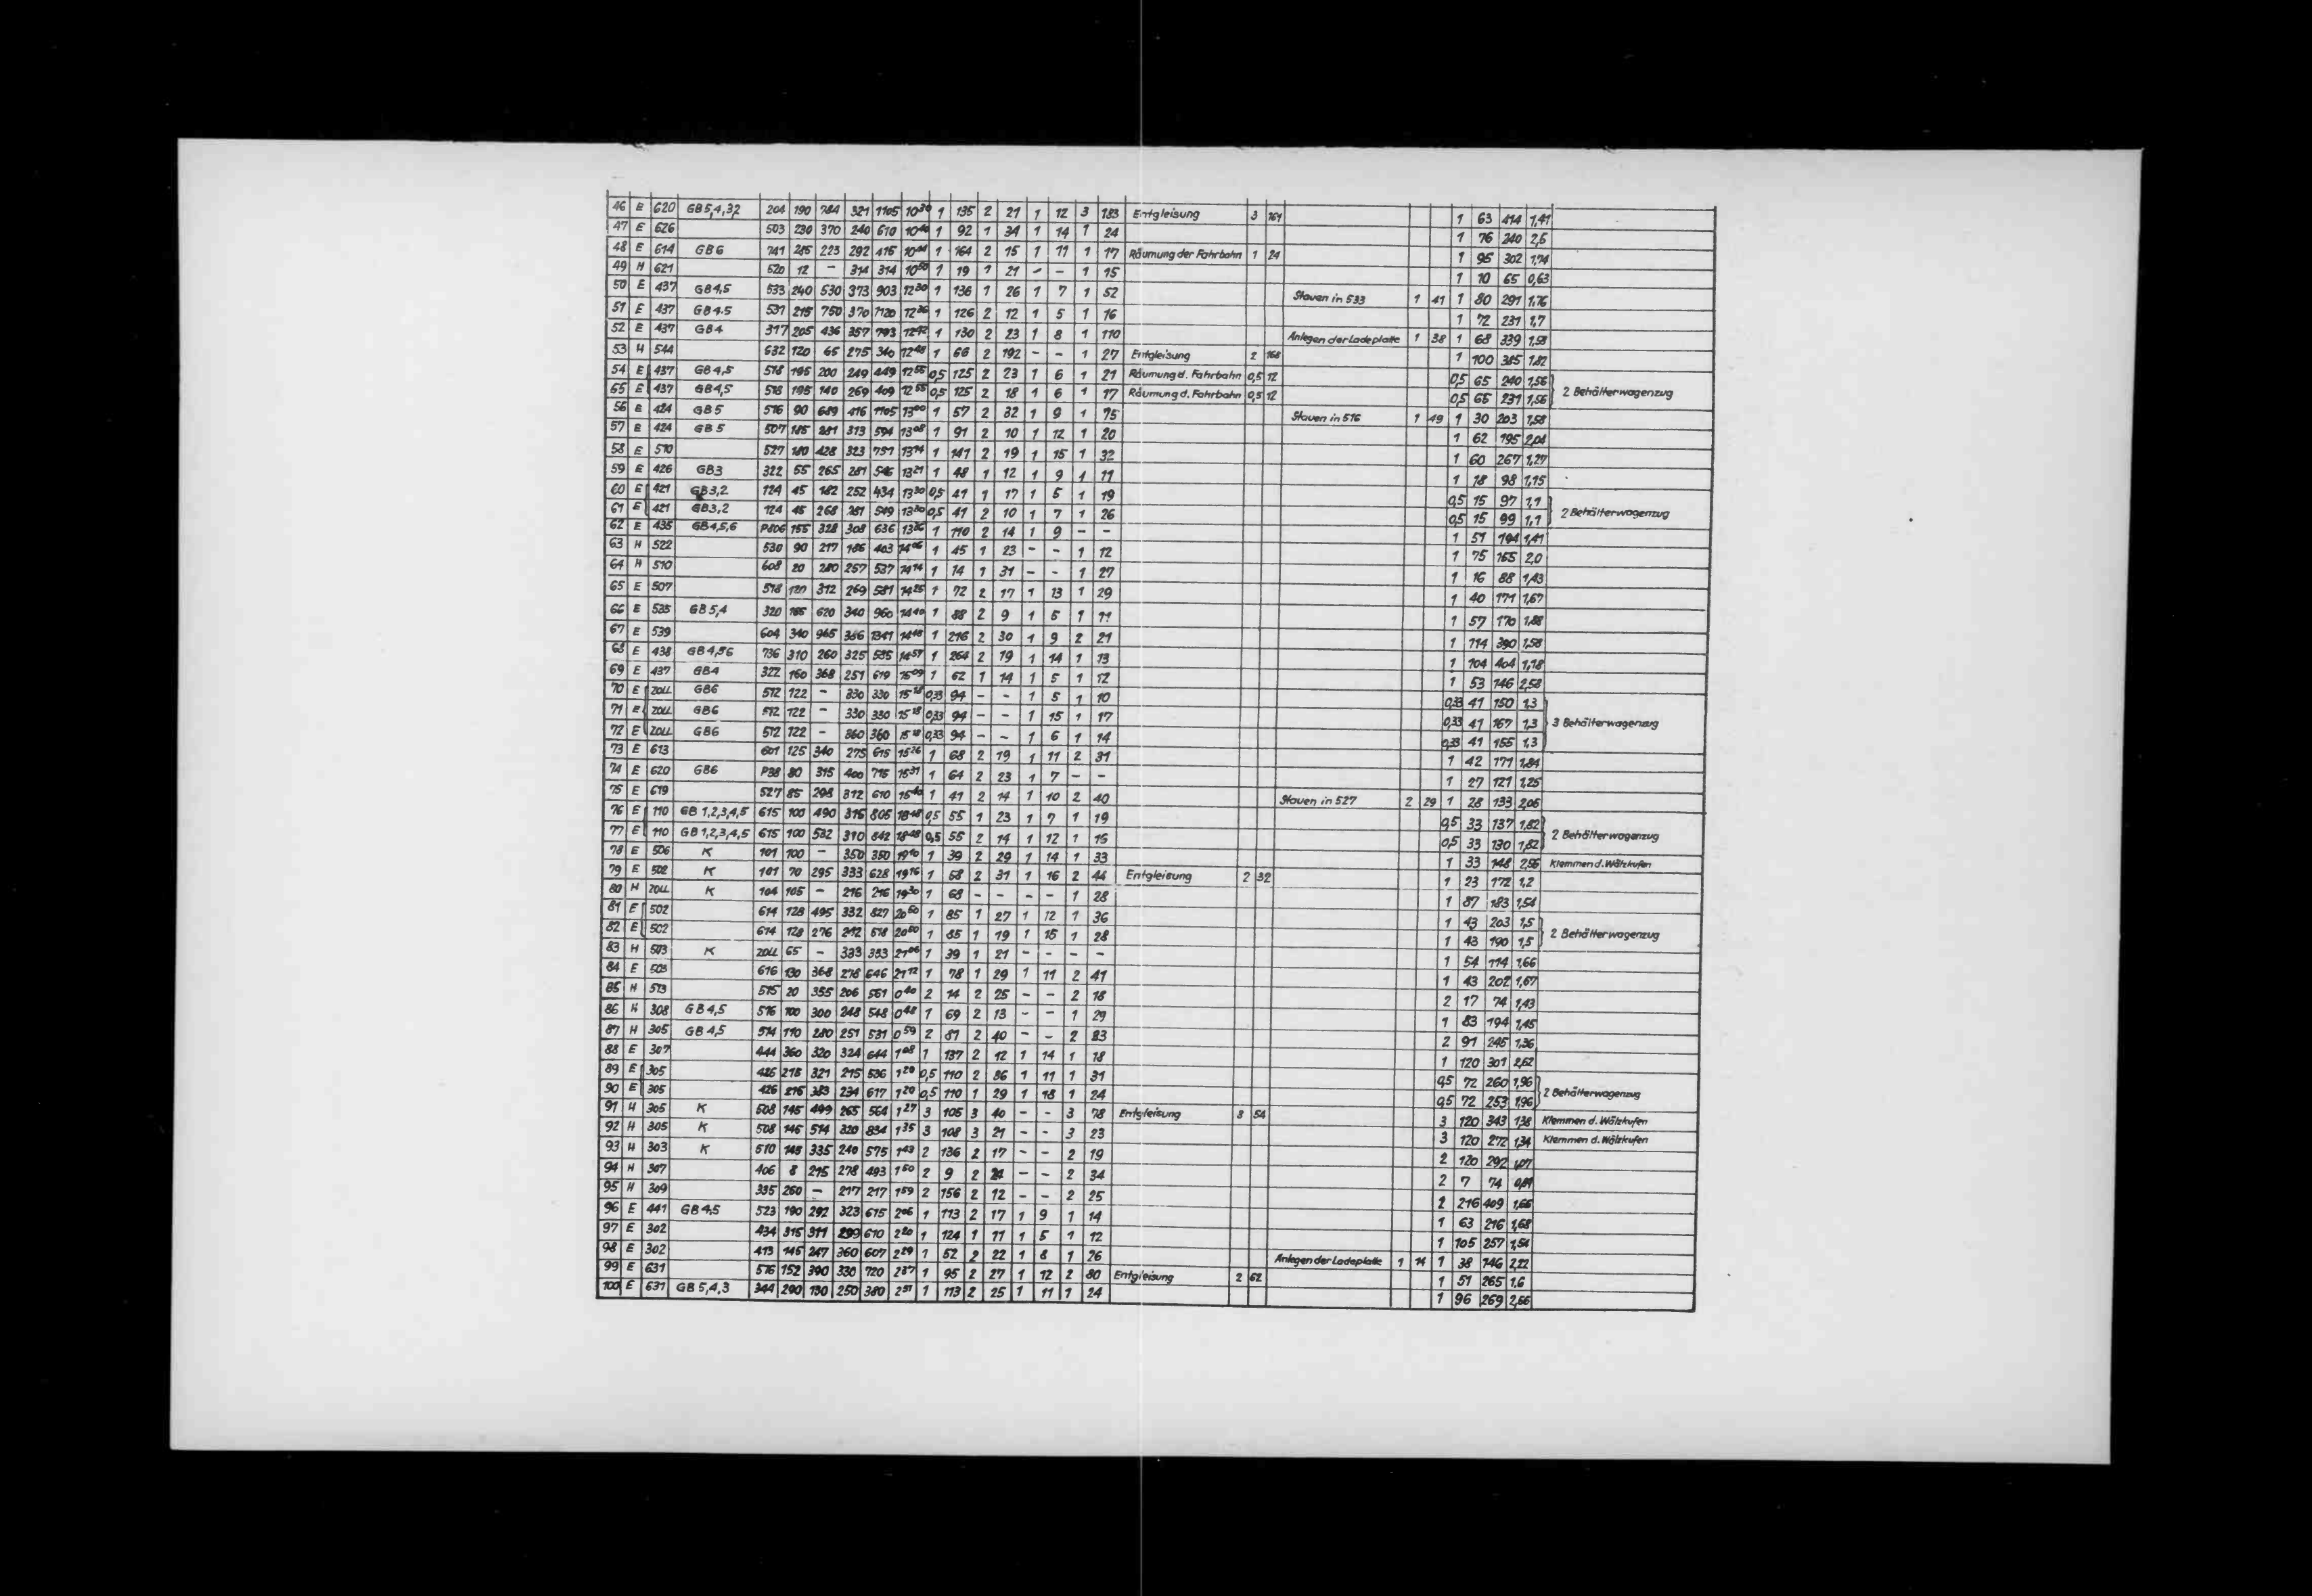 46 E 620 GB 5,4,32 204 190 784 321 1105 10³⁰ 1 135 2 21 1 12 3 183 Entgleisung 3 161 1 63 414 1,41
47 E 626 503 230 370 240 610 10⁴⁰ 1 92 1 34 1 14 1 24 1 76 240 2,5
48 E 614 GB6 741 285 223 292 415 10⁴⁴ 1 164 2 15 1 11 1 17 Räumung der Fahrbahn 1 24 1 95 302 1,74
49 H 621 520 12 – 314 314 10⁵⁰ 1 19 1 21 – – 1 15 1 10 65 0,63
50 E 437 GB4,5 533 240 530 373 903 12³⁰ 1 136 1 26 1 7 1 52 Stauen in 533 1 41 1 80 291 1,76
51 E 437 GB4.5 531 215 750 370 1120 12³⁶ 1 126 2 12 1 5 1 16 1 72 231 1,7
52 E 437 GB4 317 205 436 357 793 12⁴² 1 130 2 23 1 8 1 110 Anlegen der Ladeplatte 1 38 1 68 339 1,58
53 H 544 632 120 65 275 340 12⁴⁸ 1 66 2 192 – – 1 27 Entgleisung 2 168 1 100 385 1,82
54 E 437 GB4,5 518 195 200 249 449 12⁵⁵ 0,5 125 2 23 1 6 1 21 Räumung d. Fahrbahn 0,5 12 0,5 65 240 1,56 2 Behälterwagenzug
55 E 437 GB4,5 518 195 140 269 409 12⁵⁵ 0,5 125 2 18 1 6 1 17 Räumung d. Fahrbahn 0,5 12 0,5 65 231 1,56
56 E 424 GB5 516 90 689 416 1105 13⁰⁰ 1 57 2 32 1 9 1 75 Stauen in 516 1 49 1 30 203 1,58
57 E 424 GB 5 507 185 281 313 594 13⁰⁸ 1 91 2 10 1 12 1 20 1 62 195 2,04
58 E 510 527 180 428 323 751 13¹⁴ 1 141 2 19 1 15 1 32 1 60 267 1,27
59 E 426 GB3 322 55 265 281 546 13²¹ 1 48 1 12 1 9 1 11 1 18 98 1,15
60 E 421 GB3,2 124 45 182 252 434 13³⁰ 0,5 41 1 17 1 5 1 19 0,5 15 97 1,1 2 Behälterwagenzug
61 E 421 GB3,2 124 45 268 281 549 13³⁰ 0,5 41 2 10 1 7 1 26 0,5 15 99 1,1
62 E 435 GB4,5,6 P806 155 328 308 636 13³⁶ 1 110 2 14 1 9 – – 1 51 194 1,41
63 H 522 530 90 217 186 403 14⁰⁶ 1 45 1 23 – – 1 12 1 75 155 2,0
64 H 510 608 20 280 257 537 14¹⁴ 1 14 1 31 – – 1 27 1 16 88 1,43
65 E 507 518 120 312 269 581 14²⁵ 1 72 2 17 1 13 1 29 1 40 171 1,67
66 E 535 GB5,4 320 165 620 340 960 14⁴⁰ 1 88 2 9 1 5 1 11 1 57 170 1,88
67 E 539 604 340 965 386 1341 14⁴⁸ 1 216 2 30 1 9 2 21 1 114 390 1,58
68 E 438 GB4,56 736 310 260 325 585 14⁵⁷ 1 264 2 19 1 14 1 13 1 104 404 1,18
69 E 437 GB4 322 160 368 251 619 15⁰⁹ 1 62 1 14 1 5 1 12 1 53 146 2,58
70 E ZOLL GB6 512 122 – 330 330 15¹⁸ 0,33 94 – – 1 5 1 10 0,33 41 150 1,3
71 E ZOLL GB6 512 122 – 330 330 15¹⁸ 0,33 94 – – 1 15 1 17 0,33 41 167 1,3 3 Behälterwagenzug
72 E ZOLL GB6 512 122 – 360 360 15¹⁸ 0,33 94 – – 1 6 1 14 0,33 41 155 1,3
73 E 613 601 125 340 275 615 15²⁶ 1 68 2 19 1 11 2 31 1 42 171 1,84
74 E 620 GB6 P38 80 315 400 715 15³¹ 1 64 2 23 1 7 – – 1 27 121 1,25
75 E 619 527 85 298 312 610 15⁴⁰ 1 41 2 14 1 10 2 40 Stauen in 527 2 29 1 28 133 2,06
76 E 110 GB 1,2,3,4,5 615 100 490 315 805 18⁴⁸ 0,5 55 1 23 1 7 1 19 0,5 33 137 1,82 2 Behälterwagenzug
77 E 110 GB 1,2,3,4,5 615 100 532 310 842 18⁴⁸ 0,5 55 2 14 1 12 1 15 0,5 33 130 1,82
78 E 506 K 101 100 – 350 350 19¹⁰ 1 39 2 29 1 14 1 33 1 33 148 2,56 Klemmen d. Wälzkufen
79 E 502 K 101 70 295 333 628 19¹⁶ 1 58 2 31 1 16 2 44 Entgleisung 2 32 1 23 172 1,2
80 H ZOLL K 104 105 – 216 216 19³⁰ 1 68 – – – – 1 28 1 87 183 1,54
81 E 502 614 128 495 332 827 20⁵⁰ 1 85 1 27 1 12 1 36 1 43 203 1,5 2 Behälterwagenzug
82 E 502 614 128 276 242 518 20⁵⁰ 1 85 1 19 1 15 1 28 1 43 190 1,5
83 H 503 K ZOLL 65 – 333 333 21⁰⁶ 1 39 1 21 – – – – 1 54 114 1,66
84 E 503 616 130 368 278 646 21¹² 1 78 1 29 1 11 2 41 1 43 202 1,67
85 H 513 515 20 355 206 561 0⁴⁰ 2 14 2 25 – – 2 18 2 17 74 1,43
86 H 308 GB4,5 516 100 300 248 548 0⁴⁸ 1 69 2 13 – – 1 29 1 83 194 1,45
87 H 305 GB4,5 514 110 280 251 531 0⁵⁹ 2 81 2 40 – – 2 83 2 91 245 1,36
88 E 307 444 360 320 324 644 1⁰⁸ 1 137 2 12 1 14 1 18 1 120 301 2,62
89 E 305 426 215 321 215 536 1²⁰ 0,5 110 2 36 1 11 1 31 0,5 72 260 1,96 2 Behälterwagenzug
90 E 305 426 215 383 234 617 1²⁰ 0,5 110 1 29 1 18 1 24 0,5 72 253 1,96
91 H 305 K 508 145 499 265 564 1²⁷ 3 105 3 40 – – 3 78 Entgleisung 3 54 3 120 343 1,38 Klemmen d. Wälzkufen
92 H 305 K 508 145 514 320 834 1³⁵ 3 108 3 21 – – 3 23 3 120 272 1,34 Klemmen d. Wälzkufen
93 H 303 K 510 145 335 240 575 1⁴³ 2 136 2 17 – – 2 19 2 120 292 1,07
94 H 307 406 8 215 278 493 1⁵⁰ 2 9 2 24 – – 2 34 2 7 74
95 H 309 335 260 – 217 217 1⁵⁹ 2 156 2 12 – – 2 25 2 216 409 1,66
96 E 441 GB4,5 523 190 292 323 615 2⁰⁶ 1 113 2 17 1 9 1 14 1 63 216 1,68
97 E 302 434 315 311 299 610 2²⁰ 1 124 1 11 1 5 1 12 1 105 257 1,54
98 E 302 413 145 247 360 607 2²⁹ 1 52 2 22 1 8 1 26 Anlegen der Ladeplatte 1 14 1 38 146 2,22
99 E 631 516 152 390 330 720 2³⁷ 1 95 2 27 1 12 2 80 Entgleisung 2 62 1 51 265 1,6
100 E 631 GB 5,4,3 344 290 130 250 380 2⁵¹ 1 113 2 25 1 11 1 24 1 96 269 2,56